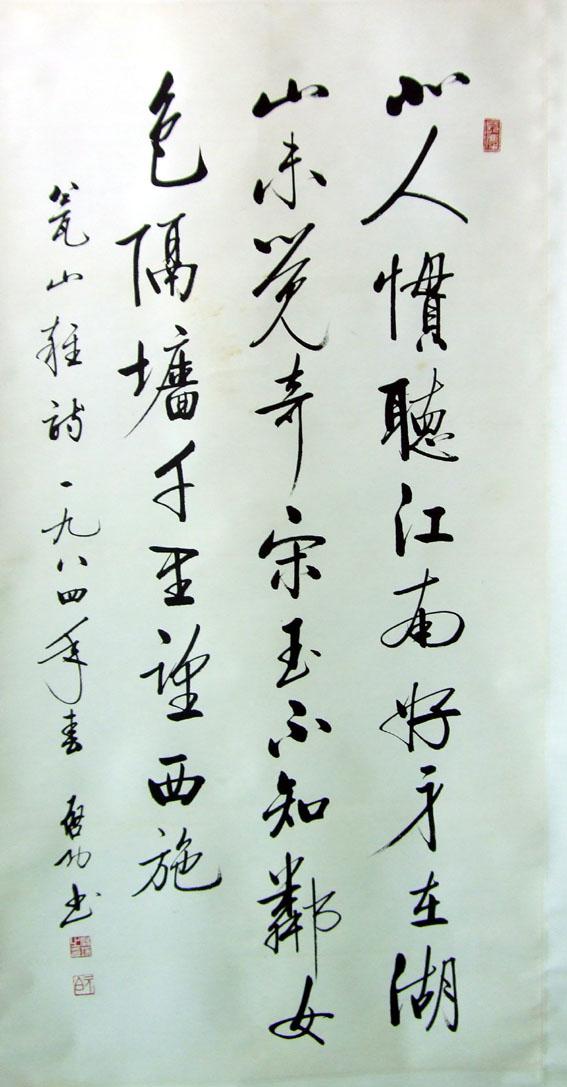 北人慣聽江南好身在湖
山未覺奇宋玉不知鄰女
色隔墻千里望西施
瓮山雜詩一九八四年春 啟功書